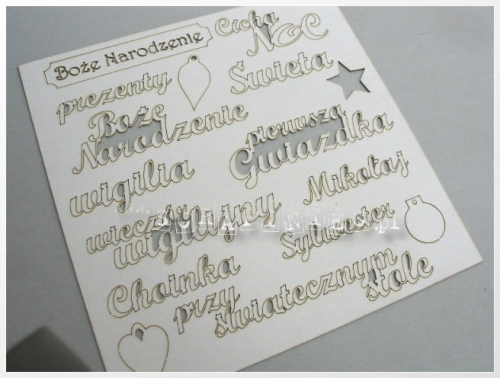 Boże Narodzenie
Cicha
Noc
prezenty
Święta
Boże
Narodzenie
pierwsza
Gwiazdka
wigilia
Mikołaj
wieczór
wigilijny
Sylwester
Choinka
przy
świątecznym
stole